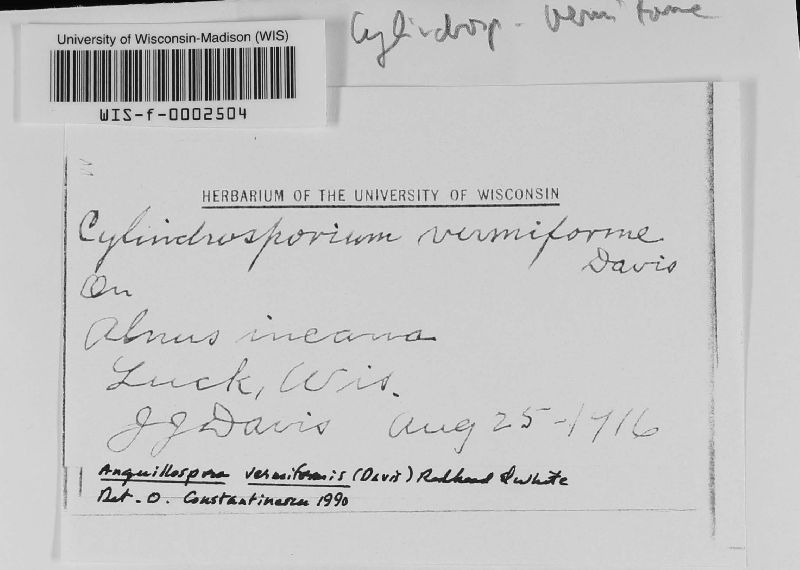 University of Wisconsin-Madison (WIS)
WIS-f-0002504
Cylindrosp - vermiforme
HERBARIUM OF THE UNIVERSITY OF WISCONSIN
Cylindrosporium vermiforme
Davis
On
Alnus incana
Luck, Wis.
JJ Davis Aug 25-1916
Anguillospora vermiformis (Davis) Redhead & White
Det. O. Constantinescu 1990